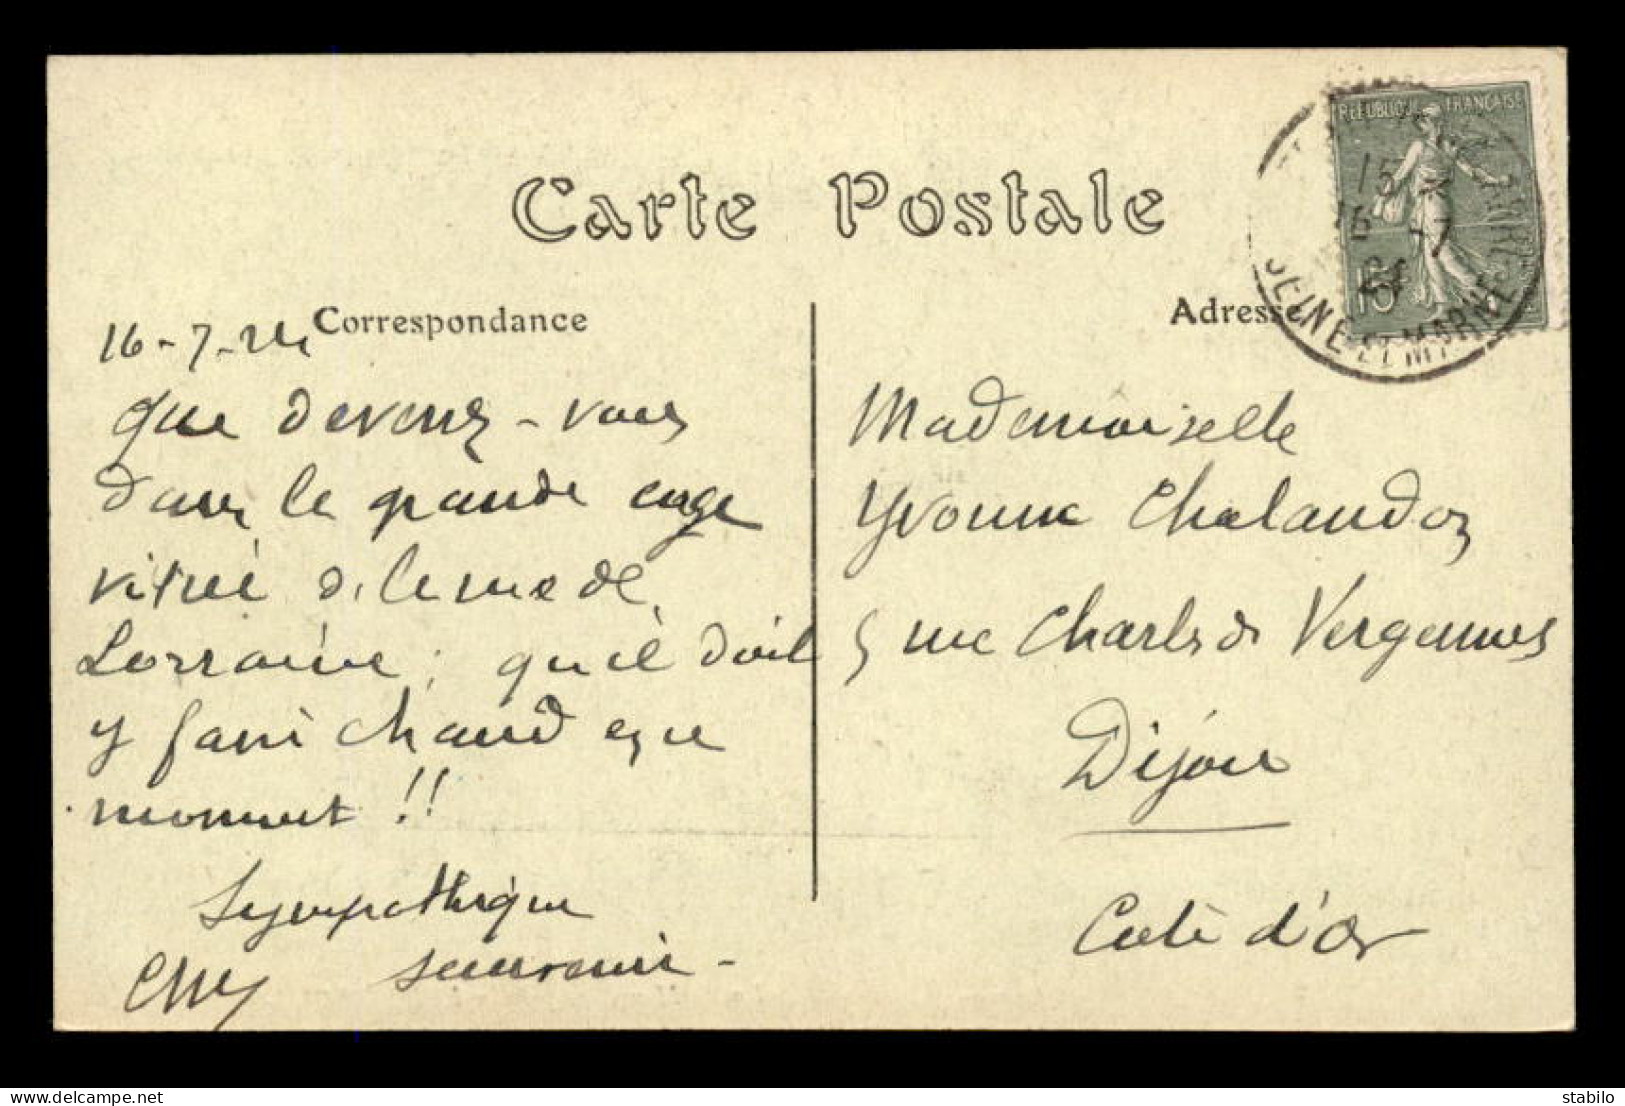 Carte Postale
Correspondance
Adresse
RÉPUBLIQUE FRANÇAISE
15
15
16 -7
24
SEINE ET MARNE
16-7-24
Que devenez-vous
dans la grande cage
vitrée de la rue de
Lorraine; qu'il doit
y faire chaud en ce
moment !!
Sympathique
souvenir -
Mademoiselle
Yvonne Chalandon
5 rue Charles de Vergennes
Dijon
Côte d'Or
Luna-36
delcampe.net
stabilo